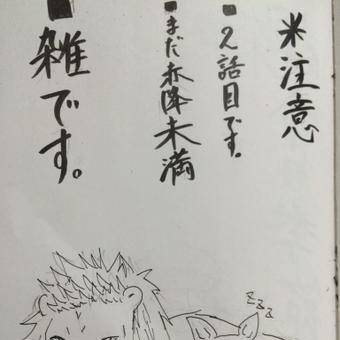 ※注意
■2話目です。
■まだ赤降未満
■雑です。
zzz